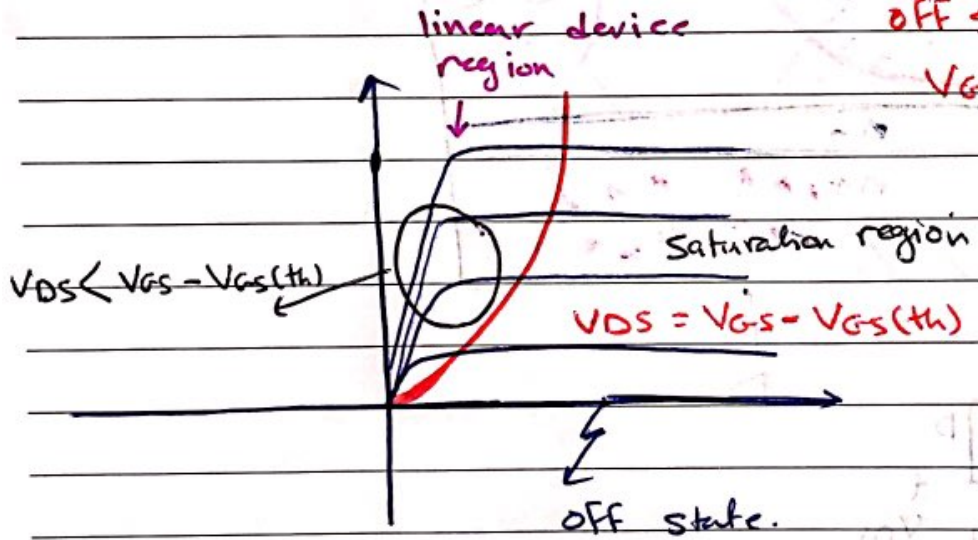 linear device
region
OFF
VG
saturation region
VDS < VGS - VGS(th)
VDS = VGS - VGS(th)
OFF state.